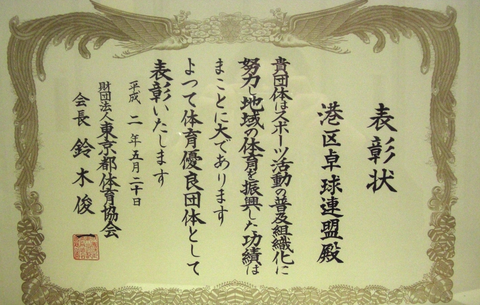 表彰状
港区卓球連盟殿
貴団体はスポーツ活動の普及組織化に
努力し地域の体育を振興した功績は
まことに大であります
よつて体育優良団体として
表彰いたします
平成二年五月二十日
財団法人東京都体育協会
会長 鈴木俊一